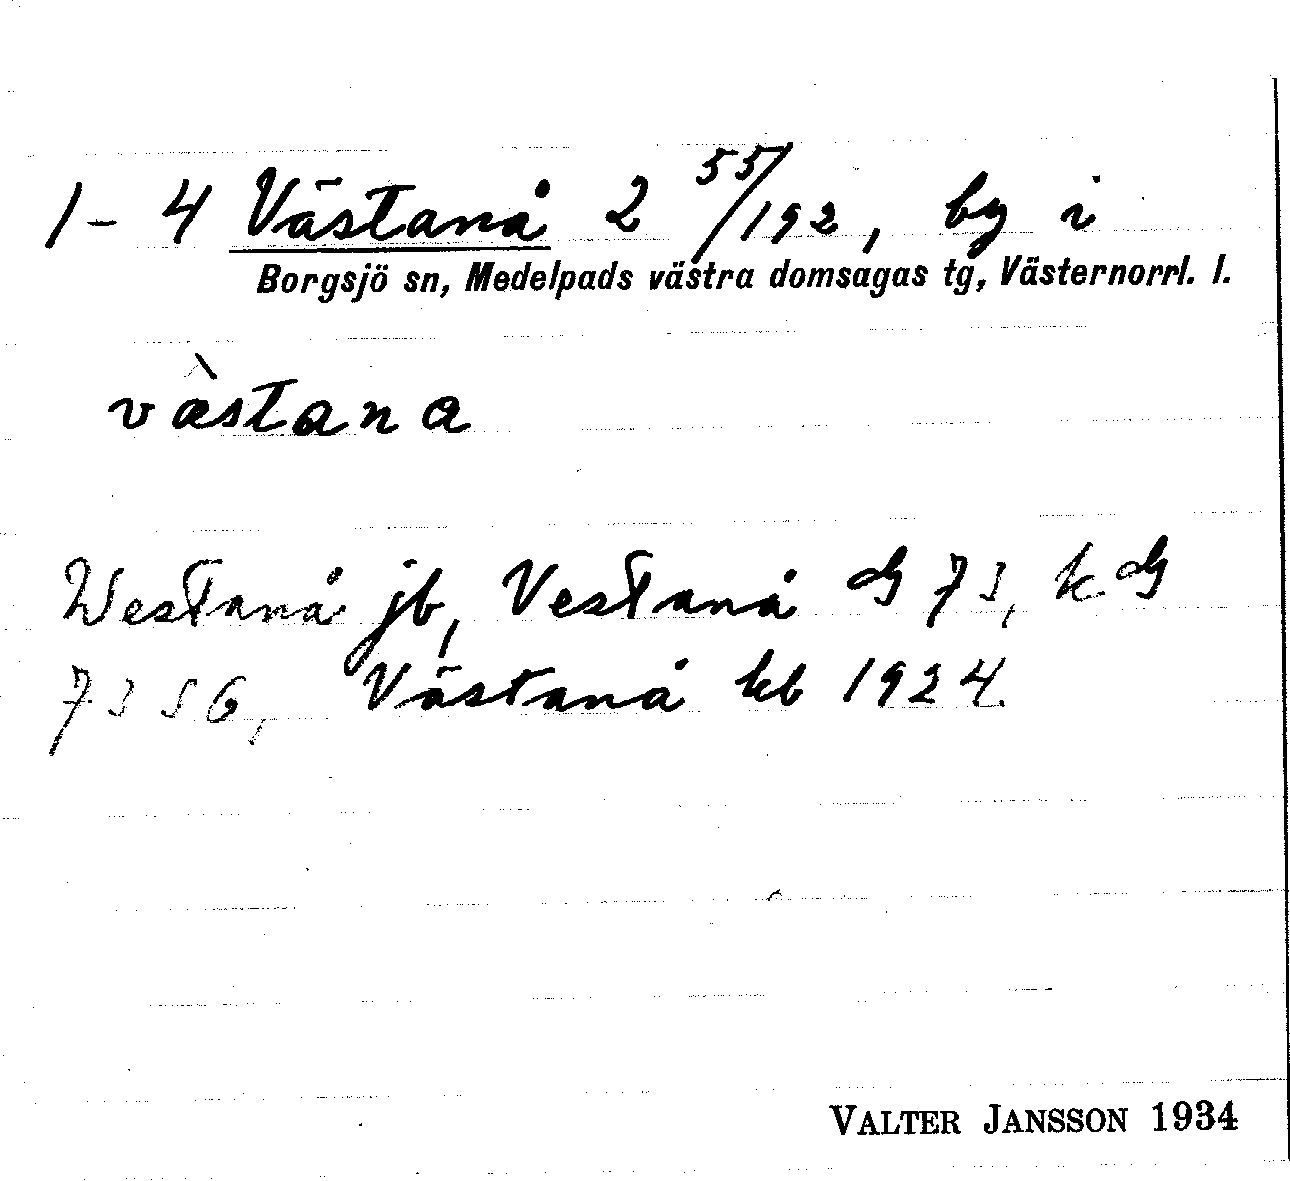 1-4 Västanå 2 55/192, by i
Borgsjö sn, Medelpads västra domsagas tg, Västernorrl. l.
væ̀stana
Westanå jb, Vestanå
Västanå kb 1924.
VALTER JANSSON 1934